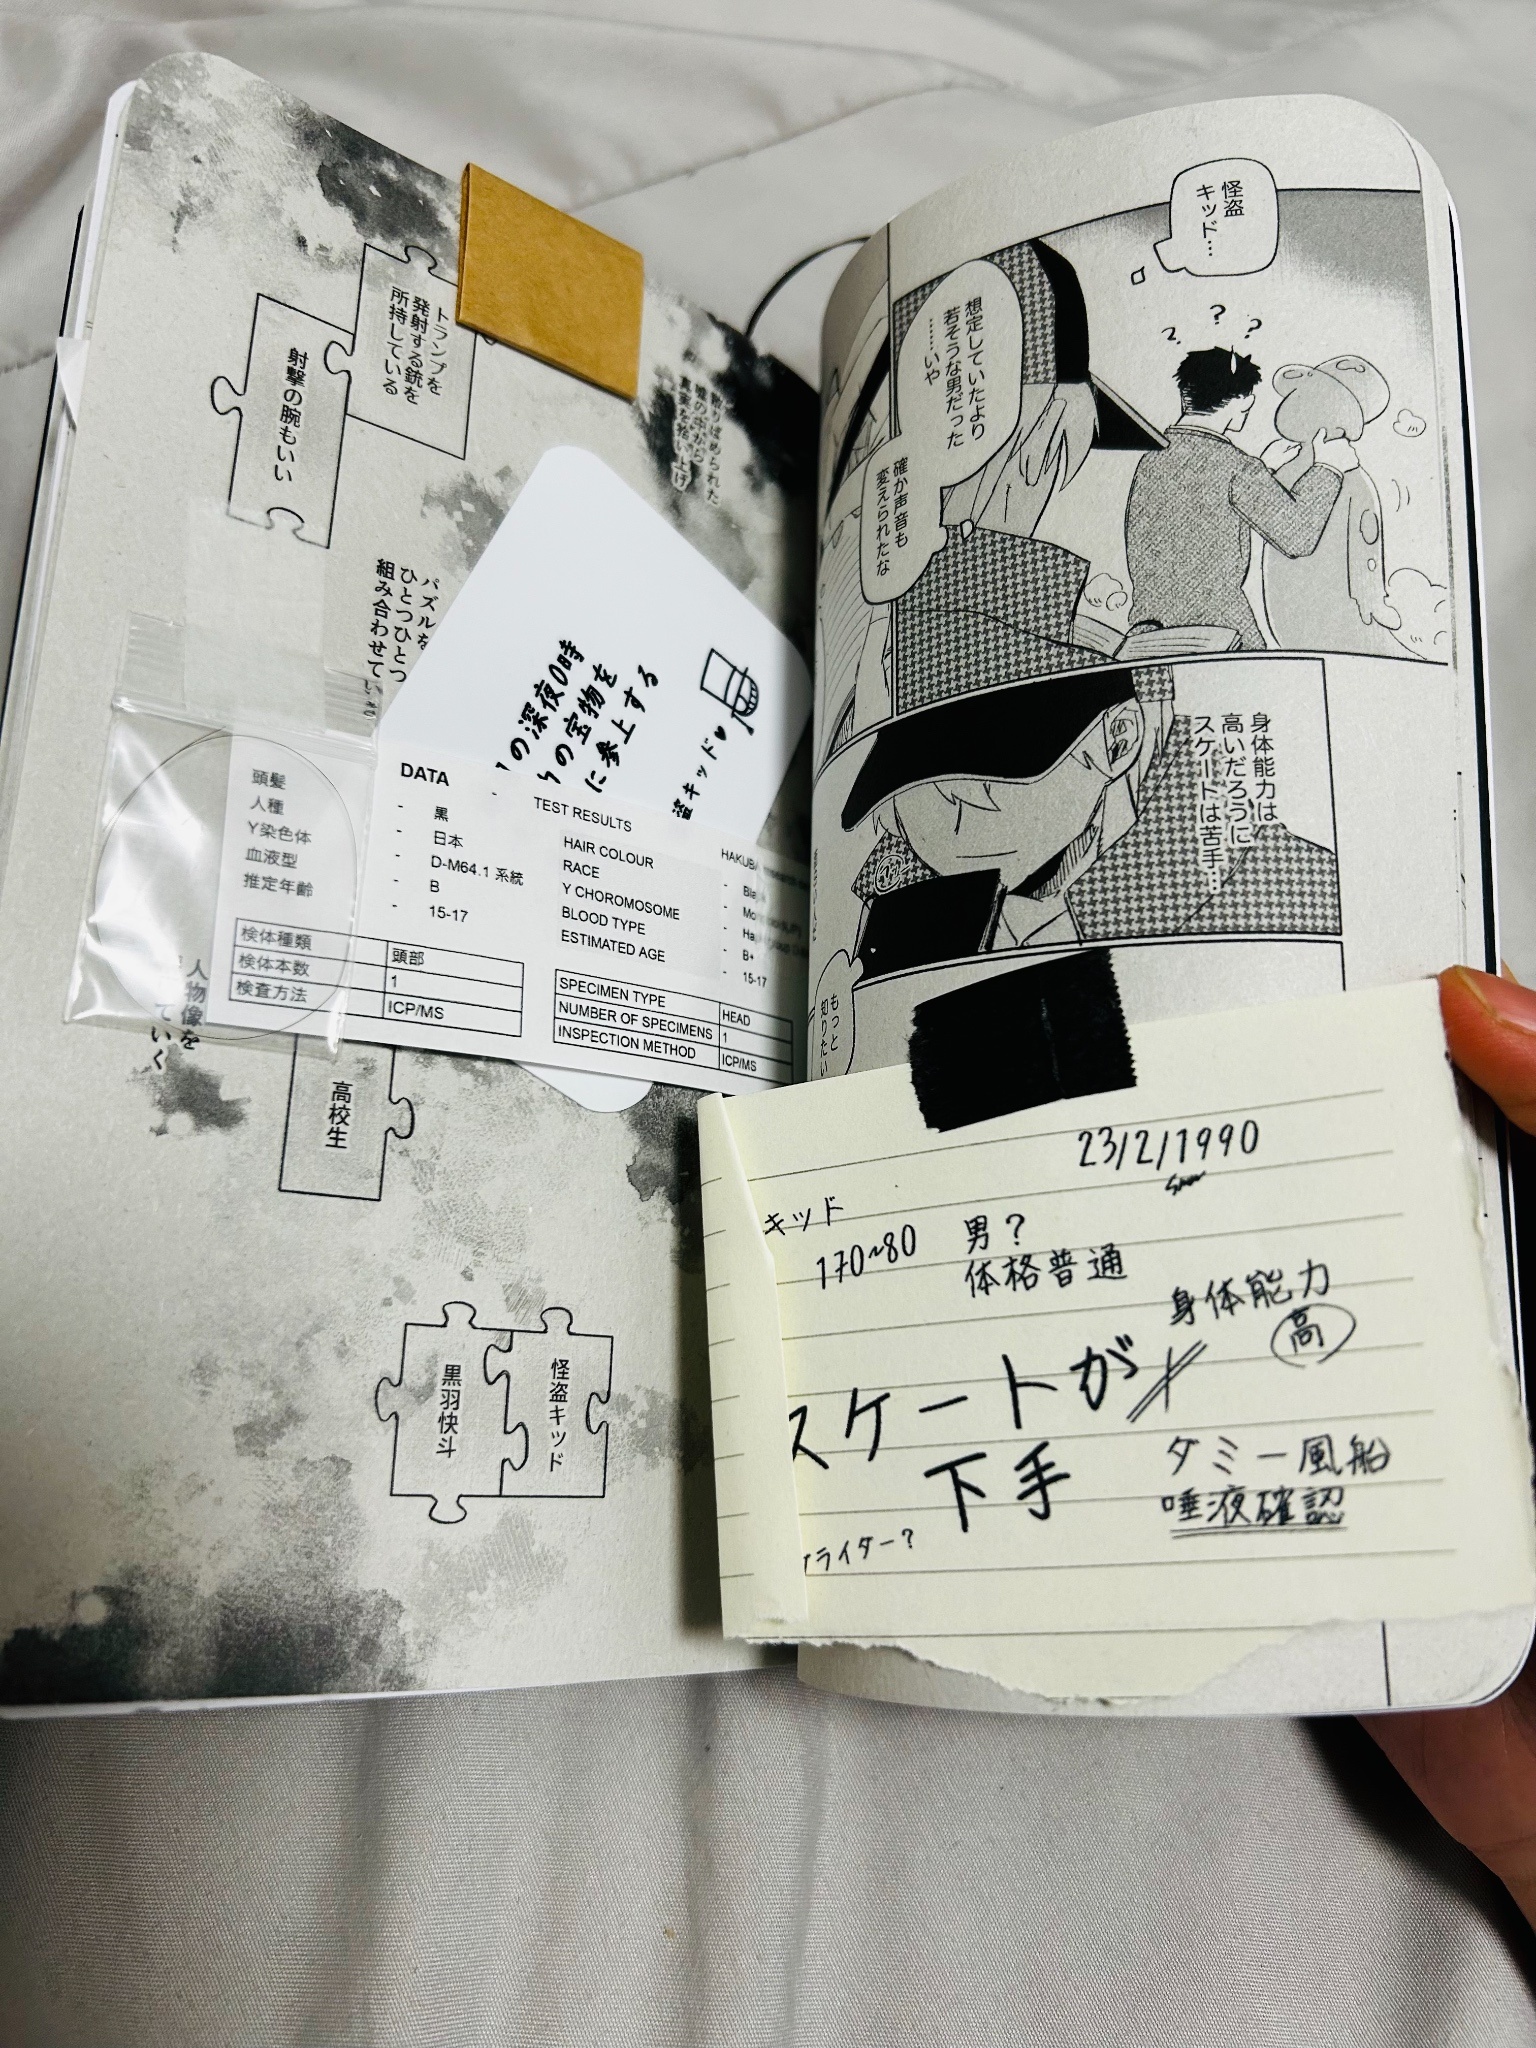 怪盗
キッド…
?
?
?
想定していたより
若そうな男だった
……いや
確か声音も
変えられたな
身体能力は
高いだろうに
スケートは苦手…
もっと
知りたい
トランプを
発射する銃を
所持している
射撃の腕もいい
散りばめられた
嘘の中から
真実を拾い上げ
パズルを
ひとつひとつ
組み合わせて
の深夜0時
の宝物を
に参上する
盗キッド♥
DATA
頭髪 - 黒
人種 - 日本
Y染色体 - D-M64.1 系統
血液型 - B
推定年齢 - 15-17
検体種類 頭部
検体本数 1
検査方法 ICP/MS
TEST RESULTS
HAIR COLOUR
RACE
Y CHOROMOSOME
BLOOD TYPE - B+
ESTIMATED AGE - 15-17
SPECIMEN TYPE HEAD
NUMBER OF SPECIMENS 1
INSPECTION METHOD ICP/MS
人物像を
ていく
高校生
怪盗キッド
黒羽快斗
23/2/1990
キッド
170~80 男?
体格普通
身体能力
高
スケートが
下手
ダミー風船
唾液確認
ライター?